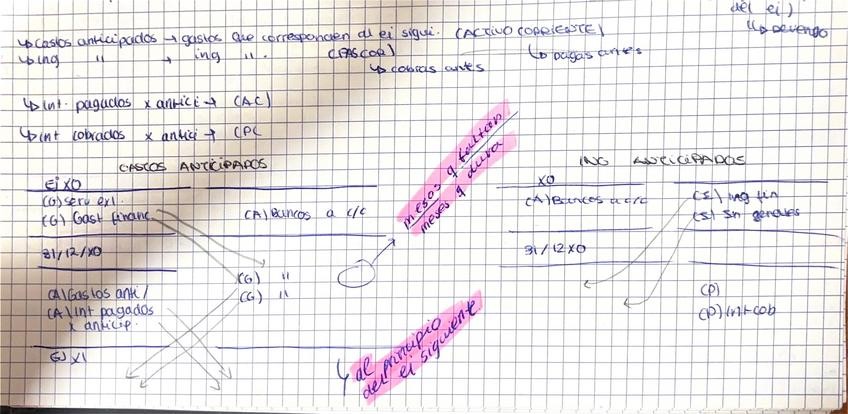 del ei)
↳ devengo
↳ Gastos anticipados → gastos que corresponden al ei sigui. (ACTIVO CORRIENTE)
↳ pagas antes
↳ ing " → ing ". (PASCOR)
↳ cobras antes
↳ int. pagados x antici → (AC)
↳ int cobrados x antici → (PC
GASTOS ANTICIPADOS
Ej X0
(G) serv ext.
(G) Gast financ.
(A) Bancos a c/c
31/12/X0
(A) Gastos anti /
(A) Int pagados
x anticip.
(G) "
(G) "
Ej X1
meses q faltan
meses q dura
↳ al principio
del ei siguiente
ING ANTICIPADOS
X0
(A) Bancos a c/c
(I) ing fin
31/12X0
(P)
(P) Int cob